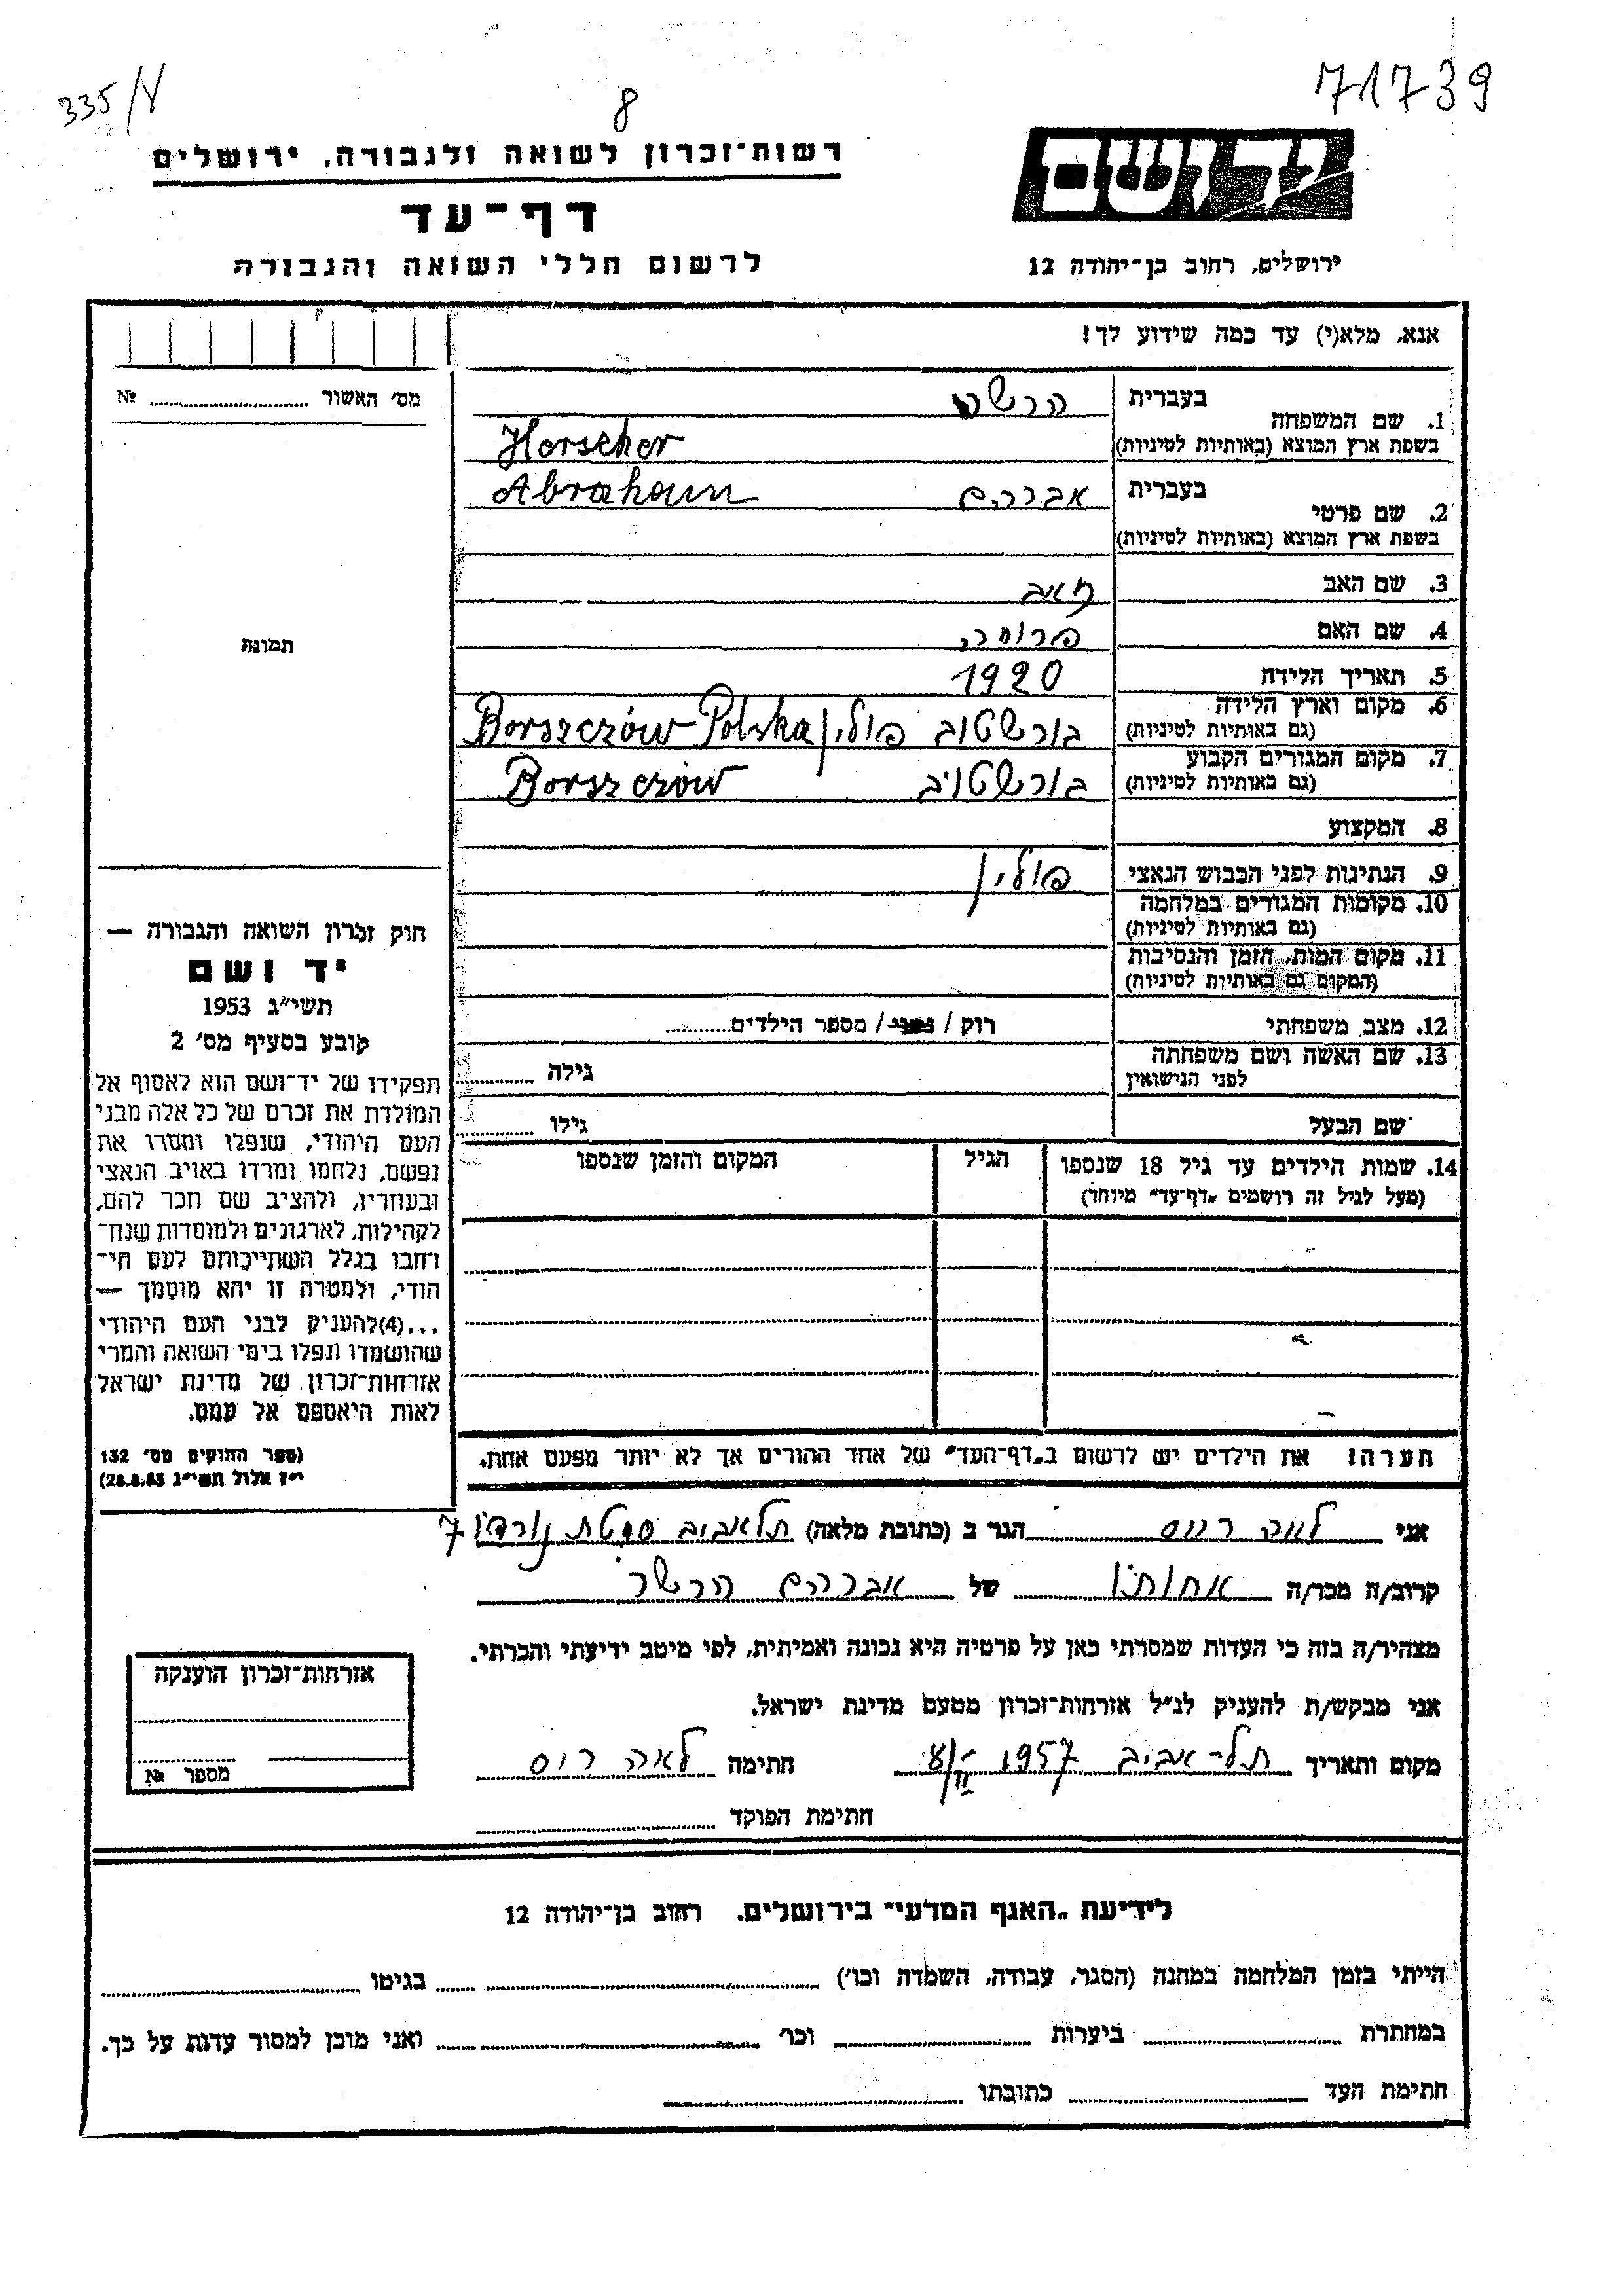 335/V
8
71739
רשות־זכרון לשואה ולגבורה, ירושלים
דף־עד
לרשום חללי השואה והגבורה
יד ושם
ירושלים, רחוב בן־יהודה 12
אנא, מלא(י) עד כמה שידוע לך!
מס׳ האשור № 
תמונה
בעברית
1. שם המשפחה
בשפת ארץ המוצא (באותיות לטיניות)
Herscher
בעברית אברהם Abraham
2. שם פרטי
בשפת ארץ המוצא (באותיות לטיניות)
3. שם האב
4. שם האם
5. תאריך הלידה 1920
6. מקום וארץ הלידה
(גם באותיות לטיניות) בורשטוב פולין Borszczów-Polska
7. מקום המגורים הקבוע
(גם באותיות לטיניות) בורשטויב Borszczów
8. המקצוע
9. הנתינות לפני הכבוש הנאצי פולין
10. מקומות המגורים במלחמה
(גם באותיות לטיניות)
11. מקום המות, הזמן והנסיבות
(המקום גם באותיות לטיניות)
12. מצב משפחתי רוק / נשוי / מספר הילדים
13. שם האשה ושם משפחתה
לפני הנישואין גילה
שם הבעל גילו
14. שמות הילדים עד גיל 18 שנספו הגיל המקום והזמן שנספו
(מעל לגיל זה רושמים „דף־עד״ מיוחד)
חוק זכרון השואה והגבורה —
יד ושם
תשי״ג 1953
קובע בסעיף מס׳ 2
תפקידו של יד־ושם הוא לאסוף אל
המולדת את זכרם של כל אלה מבני
העם היהודי, שנפלו ומסרו את
נפשם, נלחמו ומרדו באויב הנאצי
ובעוזריו, ולהציב שם וזכר להם,
לקהילות, לארגונים ולמוסדות שנח־
רבו בגלל השתייכותם לעם הי־
הודי, ולמטרה זו יהא מוסמך —
...(4)להעניק לבני העם היהודי
שהושמדו ונפלו בימי השואה והמרי
אזרחות־זכרון של מדינת ישראל
לאות היאספם אל עמם.
(ספר החוקים מס׳ 132
י״ז אלול תשי״ג 28.8.53)
הערה! את הילדים יש לרשום ב„דף־העד״ של אחד ההורים אך לא יותר מפעם אחת.
אני לאה רוס הגר ב (כתובת מלאה) תל אביב סמטת נורדוי 7
קרוב/ה מכר/ה אחותו של אברהם הרשר
מצהיר/ה בזה כי העדות שמסרתי כאן על פרטיה היא נכונה ואמיתית, לפי מיטב ידיעתי והכרתי.
אני מבקש/ת להעניק לנ״ל אזרחות־זכרון מטעם מדינת ישראל.
מקום ותאריך תל־אביב 1957 חתימה לאה רוס
חתימת הפוקד
אזרחות־זכרון הוענקה
מספר №
לידיעת „האגף המדעי״ בירושלים. רחוב בן־יהודה 12
הייתי בזמן המלחמה במחנה (הסגר, עבודה, השמדה וכו׳) בגיטו
במחתרת ביערות וכו׳ ואני מוכן למסור עדות על כך.
חתימת העד כתובתו